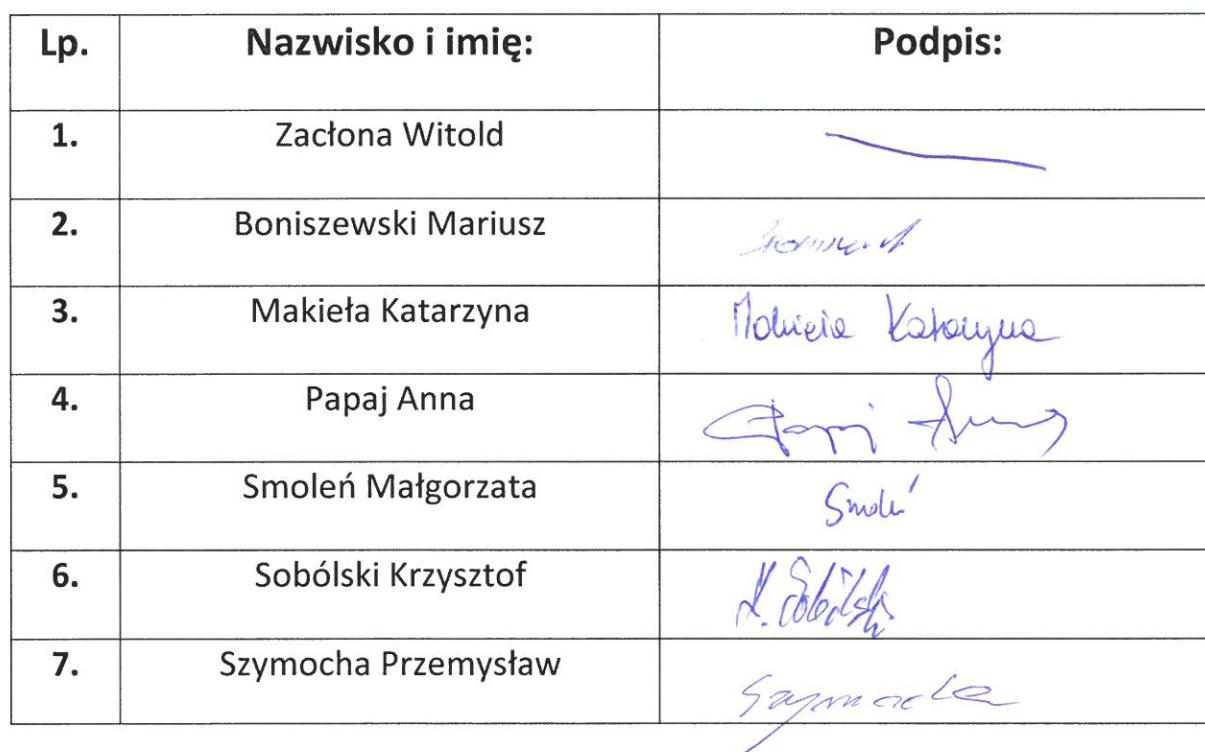 Lp. Nazwisko i imię: Podpis:
1. Zacłona Witold
2. Boniszewski Mariusz
3. Makieła Katarzyna Makieła Katarzyna
4. Papaj Anna Papaj Anna
5. Smoleń Małgorzata Smoleń
6. Sobólski Krzysztof K. Sobólski
7. Szymocha Przemysław Szymocha